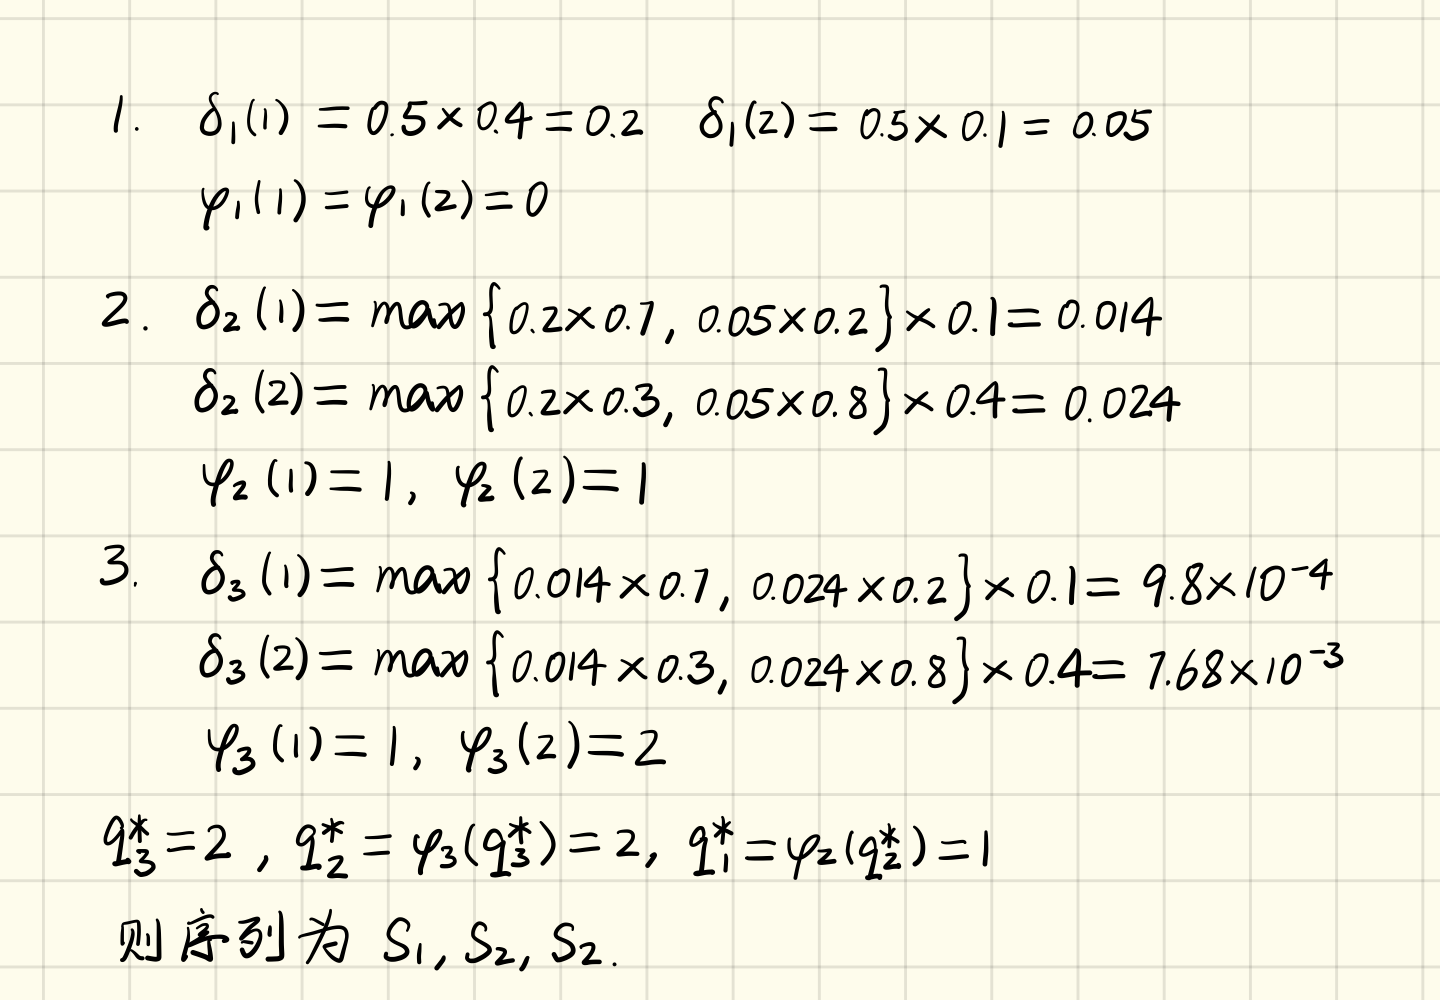 1. δ₁(1) = 0.5×0.4 = 0.2 δ₁(2) = 0.5×0.1 = 0.05
φ₁(1) = φ₁(2) = 0
2. δ₂(1) = max{0.2×0.7, 0.05×0.2}×0.1 = 0.014
δ₂(2) = max{0.2×0.3, 0.05×0.8}×0.4 = 0.024
φ₂(1) = 1, φ₂(2) = 1
3. δ₃(1) = max{0.014×0.7, 0.024×0.2}×0.1 = 9.8×10⁻⁴
δ₃(2) = max{0.014×0.3, 0.024×0.8}×0.4 = 7.68×10⁻³
φ₃(1) = 1, φ₃(2) = 2
q₃* = 2, q₂* = φ₃(q₃*) = 2, q₁* = φ₂(q₂*) = 1
则序列为 S₁, S₂, S₂.